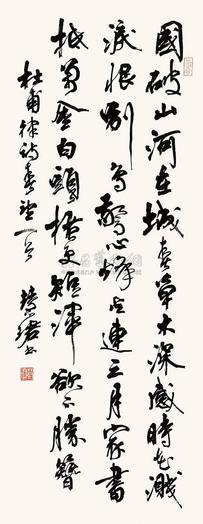 國破山河在城春草木深感時花濺
淚恨別鳥驚心烽火連三月家書
抵萬金白頭搔更短渾欲不勝簪
杜甫律詩春望一首